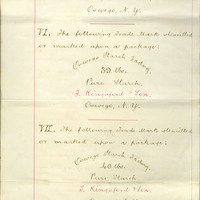 Oswego, N.Y.
VI. The following Trade Mark stencilled
or marked upon a package:
Oswego Starch Factory,
39 lbs.
Pure Starch,
T. Kingsford & Son.
Oswego, N.Y.
VII. The following Trade Mark stencilled
or marked upon a package:
Oswego Starch Factory,
40 lbs.
Pure Starch
T. Kingsford & Son